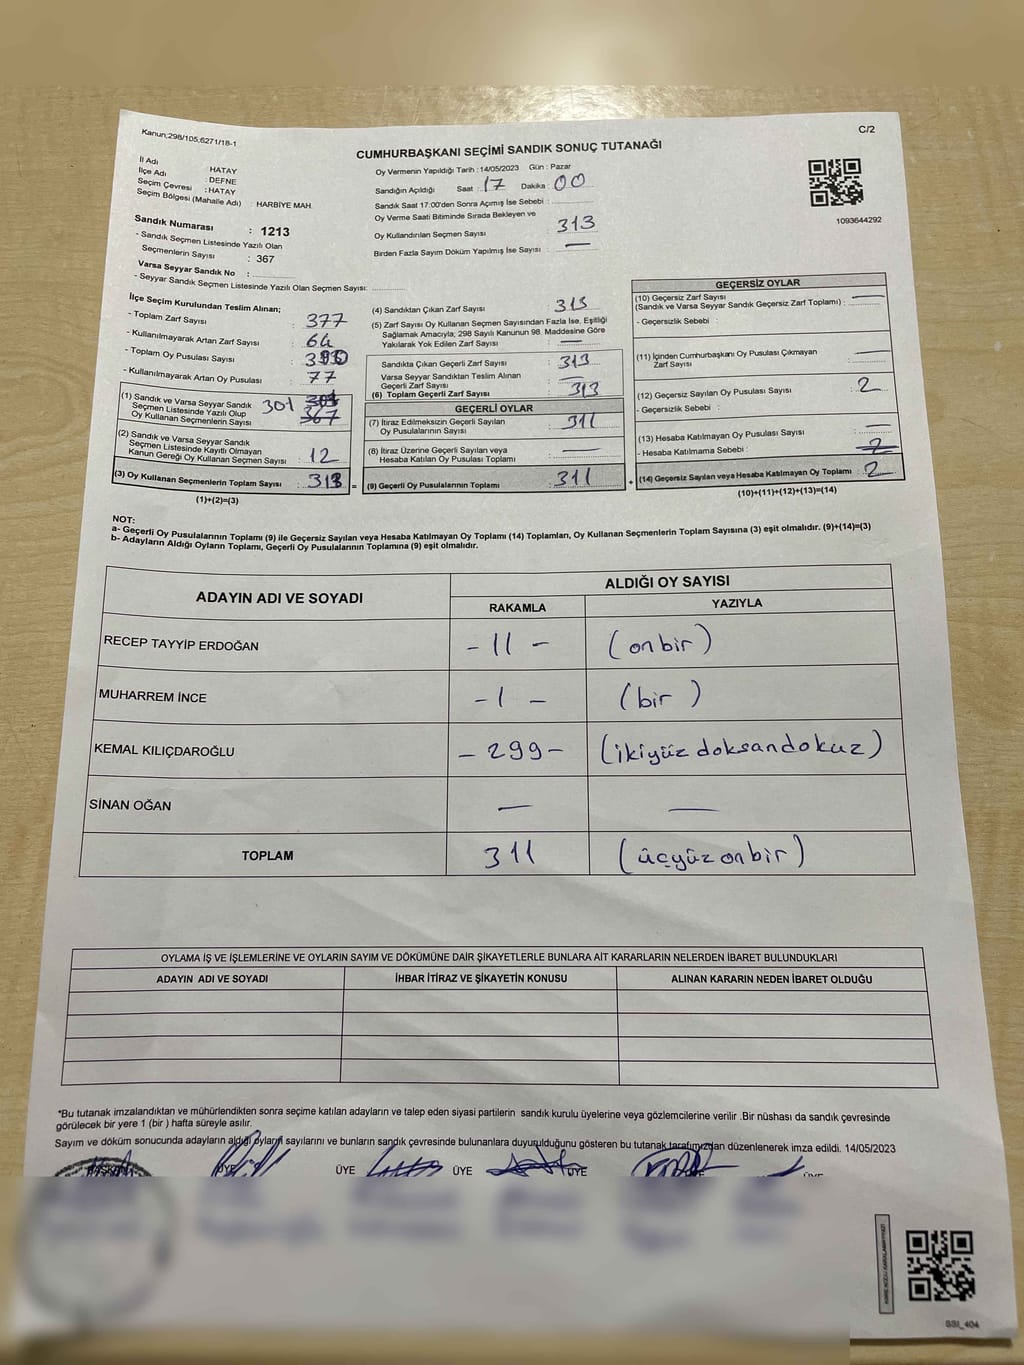 Kanun;298/105,6271/18-1
C/2
CUMHURBAŞKANI SEÇİMİ SANDIK SONUÇ TUTANAĞI
İl Adı : HATAY
İlçe Adı : DEFNE
Seçim Çevresi : HATAY
Seçim Bölgesi (Mahalle Adı) : HARBİYE MAH.
Sandık Numarası : 1213
- Sandık Seçmen Listesinde Yazılı Olan
Seçmenlerin Sayısı : 367
Varsa Seyyar Sandık No :
- Seyyar Sandık Seçmen Listesinde Yazılı Olan Seçmen Sayısı:
Oy Vermenin Yapıldığı Tarih : 14/05/2023 Gün : Pazar
Sandığın Açıldığı Saat : 17 Dakika : 00
Sandık Saat 17:00'den Sonra Açımış İse Sebebi :
Oy Verme Saati Bitiminde Sırada Bekleyen ve
Oy Kullandırılan Seçmen Sayısı : 313
Birden Fazla Sayım Döküm Yapılmış İse Sayısı : —
1093644292
İlçe Seçim Kurulundan Teslim Alınan;
- Toplam Zarf Sayısı : 377
- Kullanılmayarak Artan Zarf Sayısı : 64
- Toplam Oy Pusulası Sayısı :
- Kullanılmayarak Artan Oy Pusulası : 77
(1) Sandık ve Varsa Seyyar Sandık
Seçmen Listesinde Yazılı Olup
Oy Kullanan Seçmenlerin Sayısı : 301
367
(2) Sandık ve Varsa Seyyar Sandık
Seçmen Listesinde Kayıtlı Olmayan
Kanun Gereği Oy Kullanan Seçmen Sayısı : 12
(3) Oy Kullanan Seçmenlerin Toplam Sayısı : 313 =
(1)+(2)=(3)
(4) Sandıktan Çıkan Zarf Sayısı : 313
(5) Zarf Sayısı Oy Kullanan Seçmen Sayısından Fazla İse, Eşitliği
Sağlamak Amacıyla; 298 Sayılı Kanunun 98. Maddesine Göre
Yakılarak Yok Edilen Zarf Sayısı : —
Sandıkta Çıkan Geçerli Zarf Sayısı : 313
Varsa Seyyar Sandıktan Teslim Alınan
Geçerli Zarf Sayısı : —
(6) Toplam Geçerli Zarf Sayısı : 313
GEÇERLİ OYLAR
(7) İtiraz Edilmeksizin Geçerli Sayılan
Oy Pusulalarının Sayısı : 311
(8) İtiraz Üzerine Geçerli Sayılan veya
Hesaba Katılan Oy Pusulası Toplamı : —
(9) Geçerli Oy Pusulalarının Toplamı : 311 +
GEÇERSİZ OYLAR
(10) Geçersiz Zarf Sayısı
(Sandık ve Varsa Seyyar Sandık Geçersiz Zarf Toplamı) : —
- Geçersizlik Sebebi :
(11) İçinden Cumhurbaşkanı Oy Pusulası Çıkmayan
Zarf Sayısı : —
(12) Geçersiz Sayılan Oy Pusulası Sayısı : 2
- Geçersizlik Sebebi :
(13) Hesaba Katılmayan Oy Pusulası Sayısı : —
- Hesaba Katılmama Sebebi : 2
(14) Geçersiz Sayılan veya Hesaba Katılmayan Oy Toplamı : 2
(10)+(11)+(12)+(13)=(14)
NOT:
a- Geçerli Oy Pusulalarının Toplamı (9) ile Geçersiz Sayılan veya Hesaba Katılmayan Oy Toplamı (14) Toplamları, Oy Kullanan Seçmenlerin Toplam Sayısına (3) eşit olmalıdır. (9)+(14)=(3)
b- Adayların Aldığı Oyların Toplamı, Geçerli Oy Pusulalarının Toplamına (9) eşit olmalıdır.
ADAYIN ADI VE SOYADI
ALDIĞI OY SAYISI
RAKAMLA YAZIYLA
RECEP TAYYİP ERDOĞAN - 11 - (on bir)
MUHARREM İNCE - 1 - (bir)
KEMAL KILIÇDAROĞLU - 299 - (ikiyüz doksandokuz)
SİNAN OĞAN — —
TOPLAM 311 (üçyüz on bir)
OYLAMA İŞ VE İŞLEMLERİNE VE OYLARIN SAYIM VE DÖKÜMÜNE DAİR ŞİKAYETLERLE BUNLARA AİT KARARLARIN NELERDEN İBARET BULUNDUKLARI
ADAYIN ADI VE SOYADI İHBAR İTİRAZ VE ŞİKAYETİN KONUSU ALINAN KARARIN NEDEN İBARET OLDUĞU
*Bu tutanak imzalandıktan ve mühürlendikten sonra seçime katılan adayların ve talep eden siyasi partilerin sandık kurulu üyelerine veya gözlemcilerine verilir .Bir nüshası da sandık çevresinde
görülecek bir yere 1 (bir ) hafta süreyle asılır.
Sayım ve döküm sonucunda adayların aldığı oyların sayılarını ve bunların sandık çevresinde bulunanlara duyurulduğunu gösteren bu tutanak tarafımızdan düzenlenerek imza edildi. 14/05/2023
BAŞKAN ÜYE ÜYE ÜYE ÜYE ÜYE
SSI_404